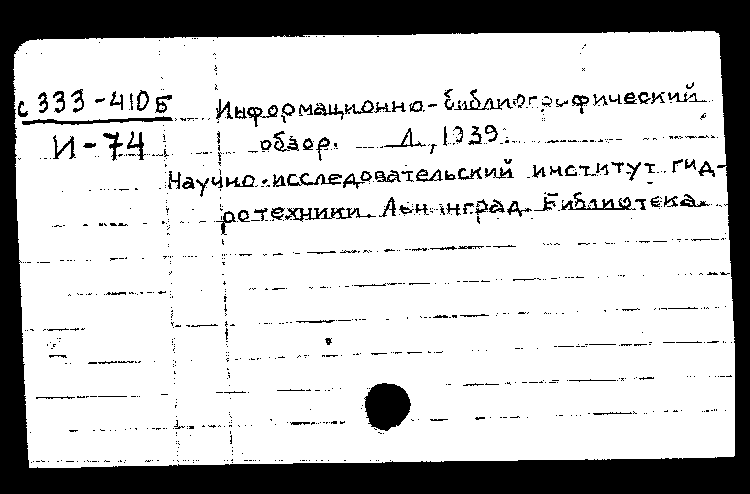 с 333-410Б
И-74
Информационно-библиографический
обзор. Л., 1939.
Научно-исследовательский институт гид-
ротехники. Ленинград. Библиотека.